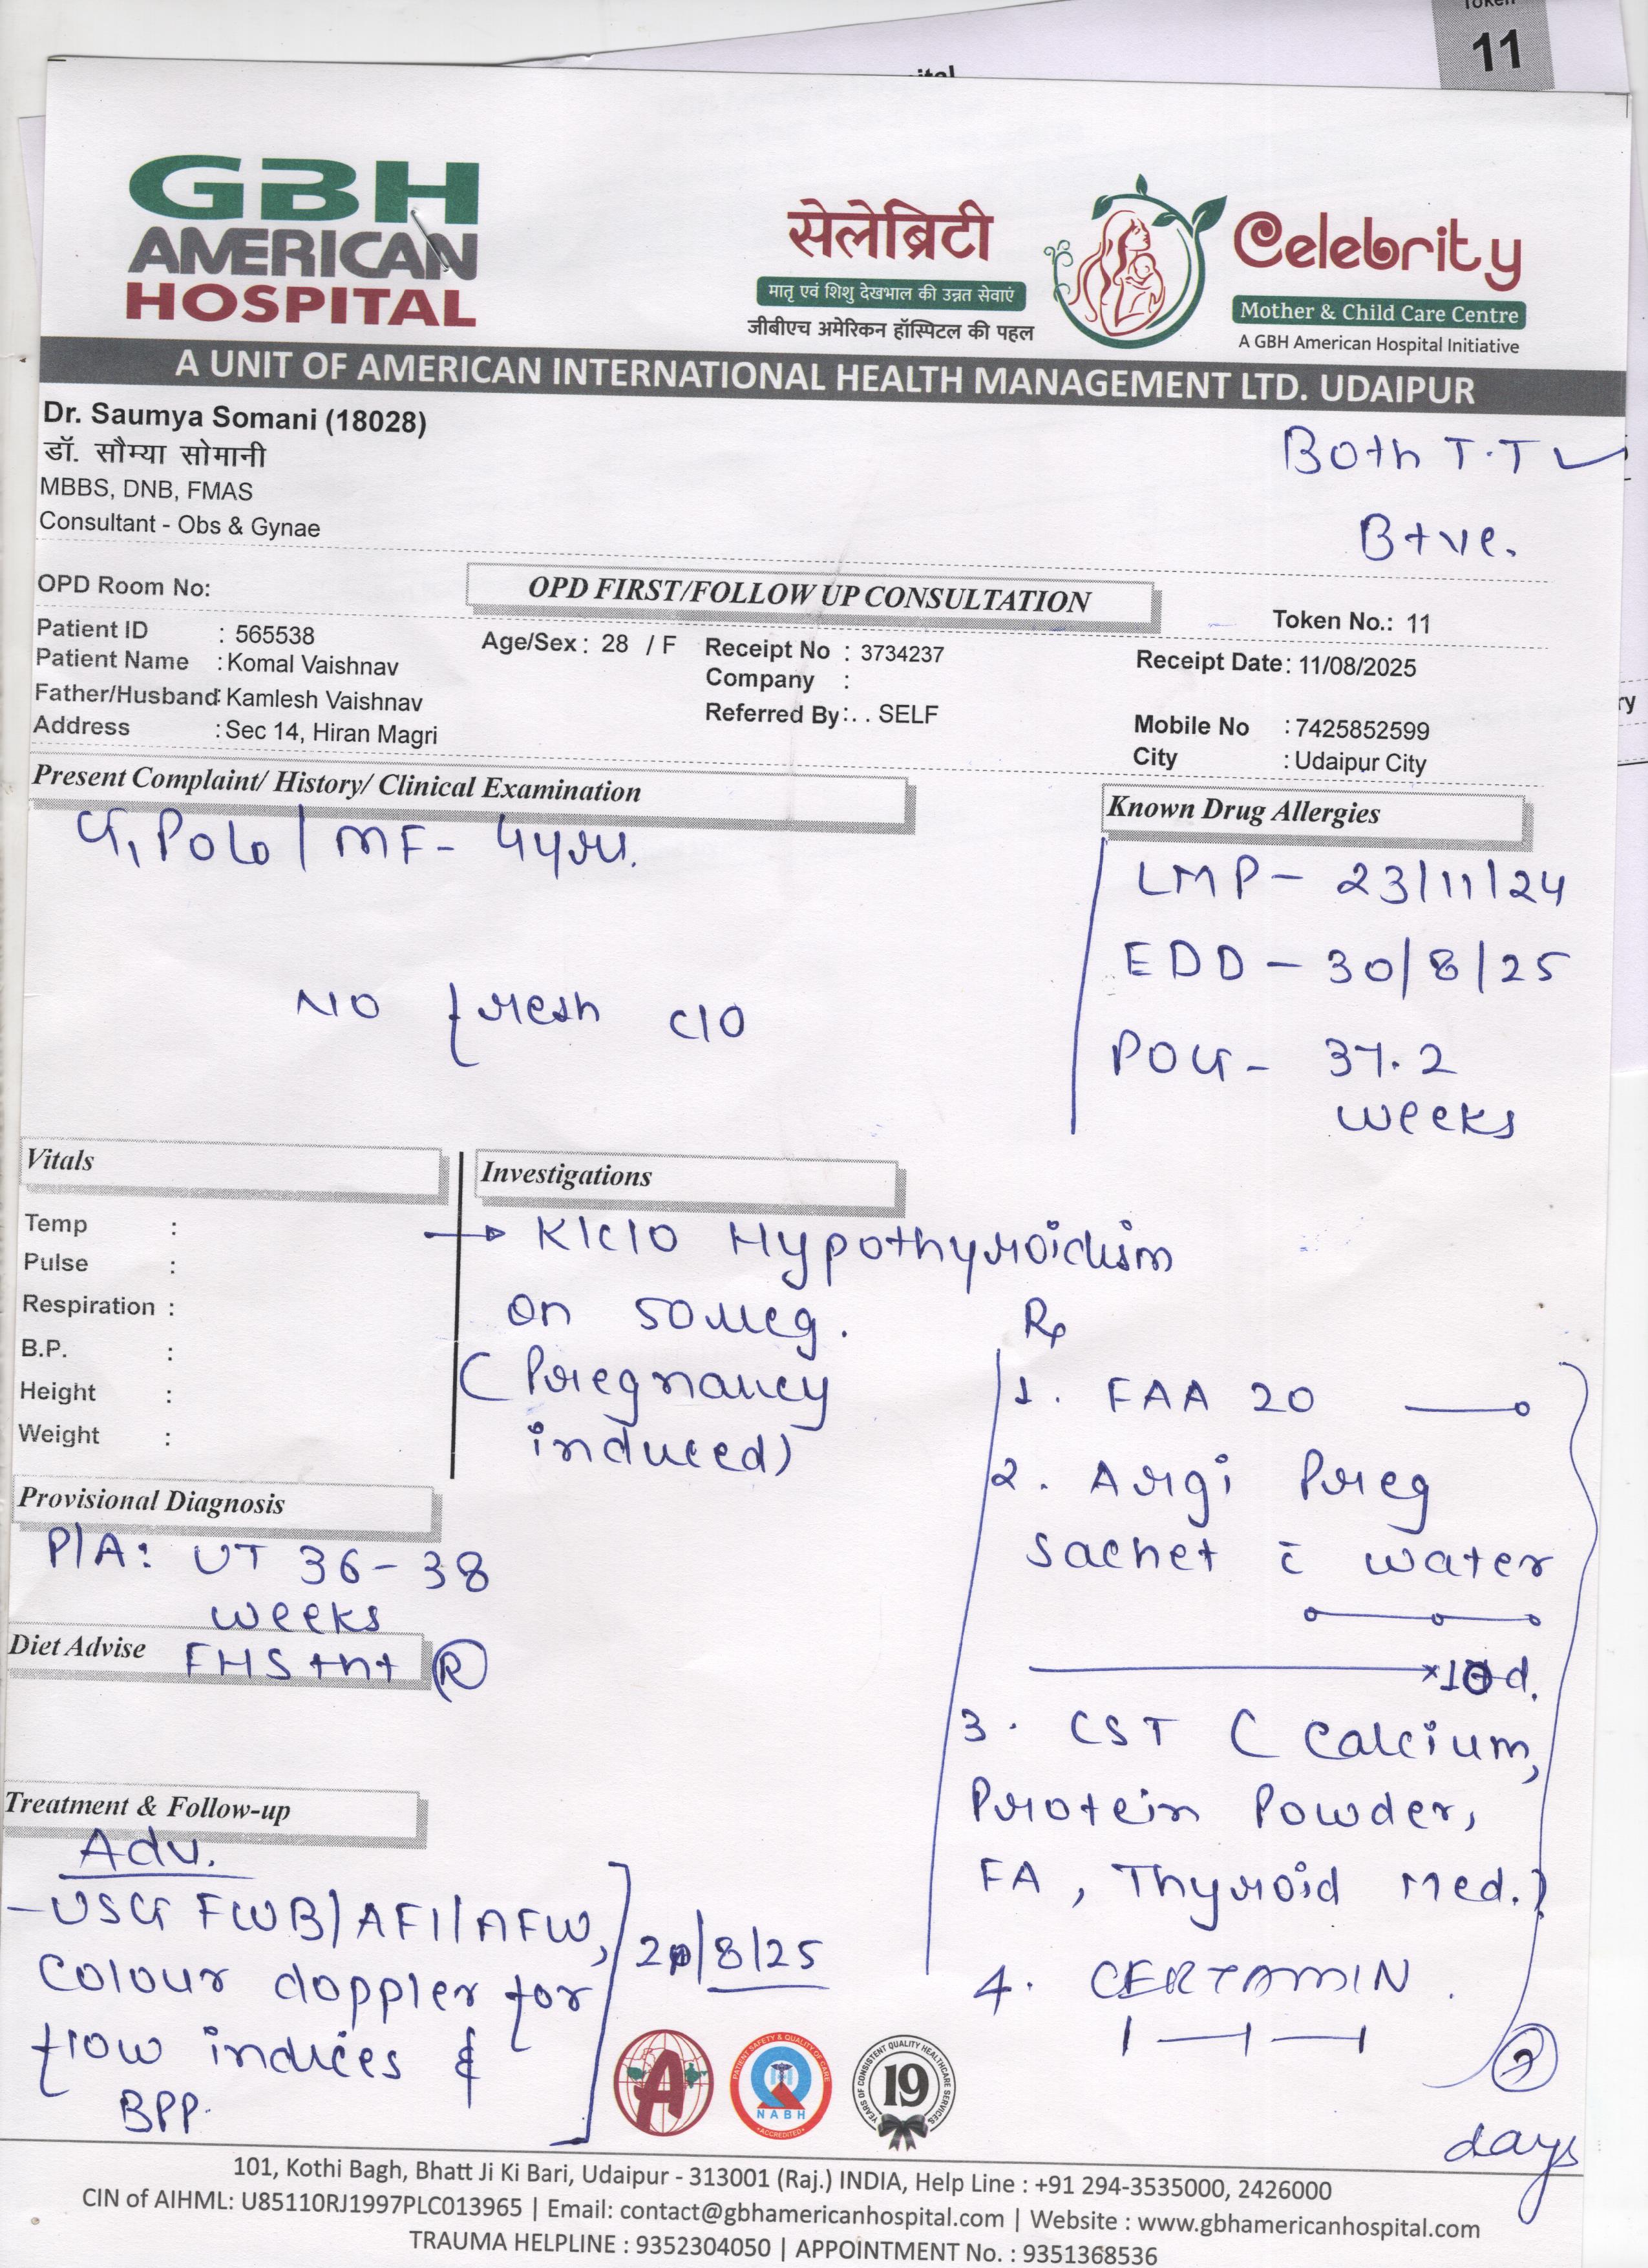 Token
11
GBH
AMERICAN
HOSPITAL
सेलेब्रिटी
मातृ एवं शिशु देखभाल की उन्नत सेवाएं
जीबीएच अमेरिकन हॉस्पिटल की पहल
Celebrity
Mother & Child Care Centre
A GBH American Hospital Initiative
A UNIT OF AMERICAN INTERNATIONAL HEALTH MANAGEMENT LTD. UDAIPUR
Dr. Saumya Somani (18028)
डॉ. सौम्या सोमानी
MBBS, DNB, FMAS
Consultant - Obs & Gynae
Both T.T ✓
B+ve.
OPD Room No:
OPD FIRST/FOLLOW UP CONSULTATION
Token No.: 11
Patient ID : 565538
Age/Sex : 28 / F
Receipt No : 3734237
Receipt Date: 11/08/2025
Patient Name : Komal Vaishnav
Company :
Father/Husband: Kamlesh Vaishnav
Referred By: . . SELF
Mobile No : 7425852599
Address : Sec 14, Hiran Magri
City : Udaipur City
Present Complaint/ History/ Clinical Examination
Known Drug Allergies
G1P0L0 / MF- 4yrs.
LMP - 23/11/24
EDD - 30/8/25
No fresh c/o
POG - 37.2
weeks
Vitals
Investigations
Temp :
Pulse :
Respiration :
B.P. :
Height :
Weight :
→ K/c/o Hypothyroidism
on 50mcg.
( Pregnancy
induced)
Rx
1. FAA 20
2. Argi Preg
sachet c̄ water
x10d.
3. CST ( Calcium,
Protein Powder,
FA, Thyroid Med.)
4. CERTAMIN.
1 — 1 — 1
days
Provisional Diagnosis
P/A: UT 36-38
weeks
Diet Advise
FHS +nt (R)
Treatment & Follow-up
Adv.
- USG FWB/AFI/AFW,
Colour doppler for
flow indices &
BPP.
/8/25
A
PATIENT SAFETY & QUALITY OF CARE
NABH
ACCREDITED
19
YEARS OF CONSISTENT QUALITY HEALTHCARE SERVICES
101, Kothi Bagh, Bhatt Ji Ki Bari, Udaipur - 313001 (Raj.) INDIA, Help Line : +91 294-3535000, 2426000
CIN of AIHML: U85110RJ1997PLC013965 | Email: contact@gbhamericanhospital.com | Website : www.gbhamericanhospital.com
TRAUMA HELPLINE : 9352304050 | APPOINTMENT No. : 9351368536